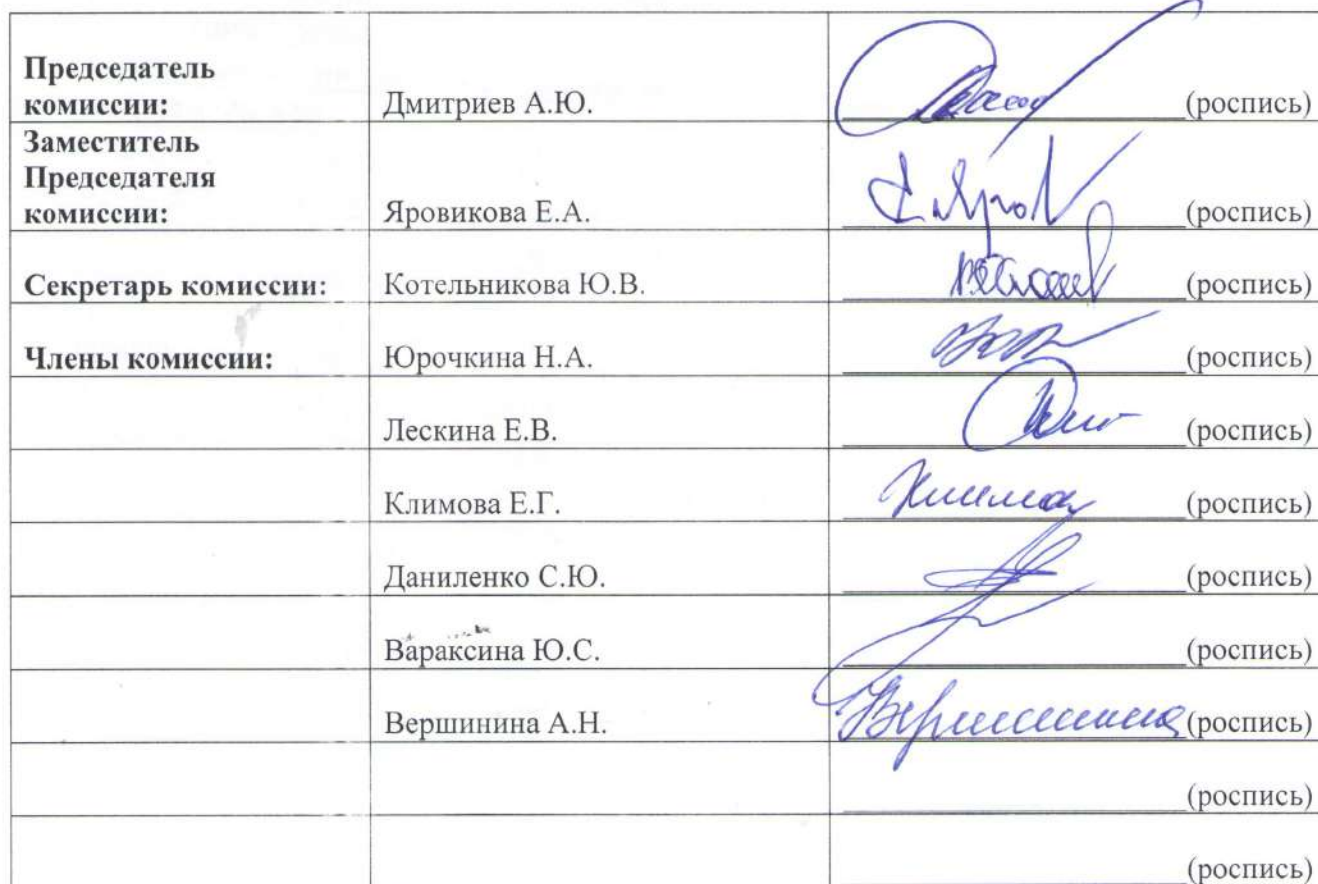 Председатель
комиссии:
Дмитриев А.Ю.
(роспись)
Заместитель
Председателя
комиссии:
Яровикова Е.А.
(роспись)
Секретарь комиссии:
Котельникова Ю.В.
(роспись)
Члены комиссии:
Юрочкина Н.А.
(роспись)
Лескина Е.В.
(роспись)
Климова Е.Г.
(роспись)
Даниленко С.Ю.
(роспись)
Вараксина Ю.С.
(роспись)
Вершинина А.Н.
Вершинина (роспись)
(роспись)
(роспись)